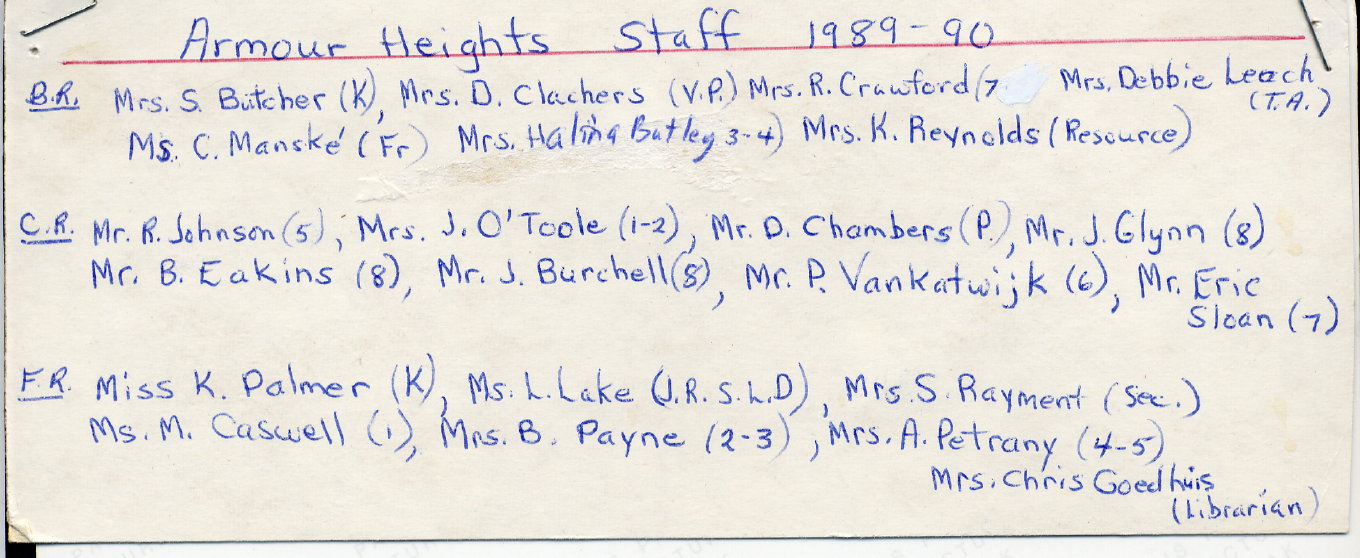 Armour Heights Staff 1989-90
B.R. Mrs. S. Butcher (K), Mrs. D. Clachers (V.P.) Mrs. R. Crawford (7 Mrs. Debbie Leach
(T.A.)
Ms. C. Manské (Fr) Mrs. Halina Batley 3-4) Mrs. K. Reynolds (Resource)
C.R. Mr. R. Johnson (5), Mrs. J. O'Toole (1-2), Mr. D. Chambers (P.), Mr. J. Glynn (8)
Mr. B. Eakins (8), Mr. J. Burchell (8), Mr. P. Vankatwijk (6), Mr. Eric
Sloan (7)
F.R. Miss K. Palmer (K), Ms. L. Lake (J.R. S.L.D), Mrs. S. Rayment (Sec.)
Ms. M. Caswell (1), Mrs. B. Payne (2-3), Mrs. A. Petrany (4-5)
Mrs. Chris Goedhuis
(Librarian)